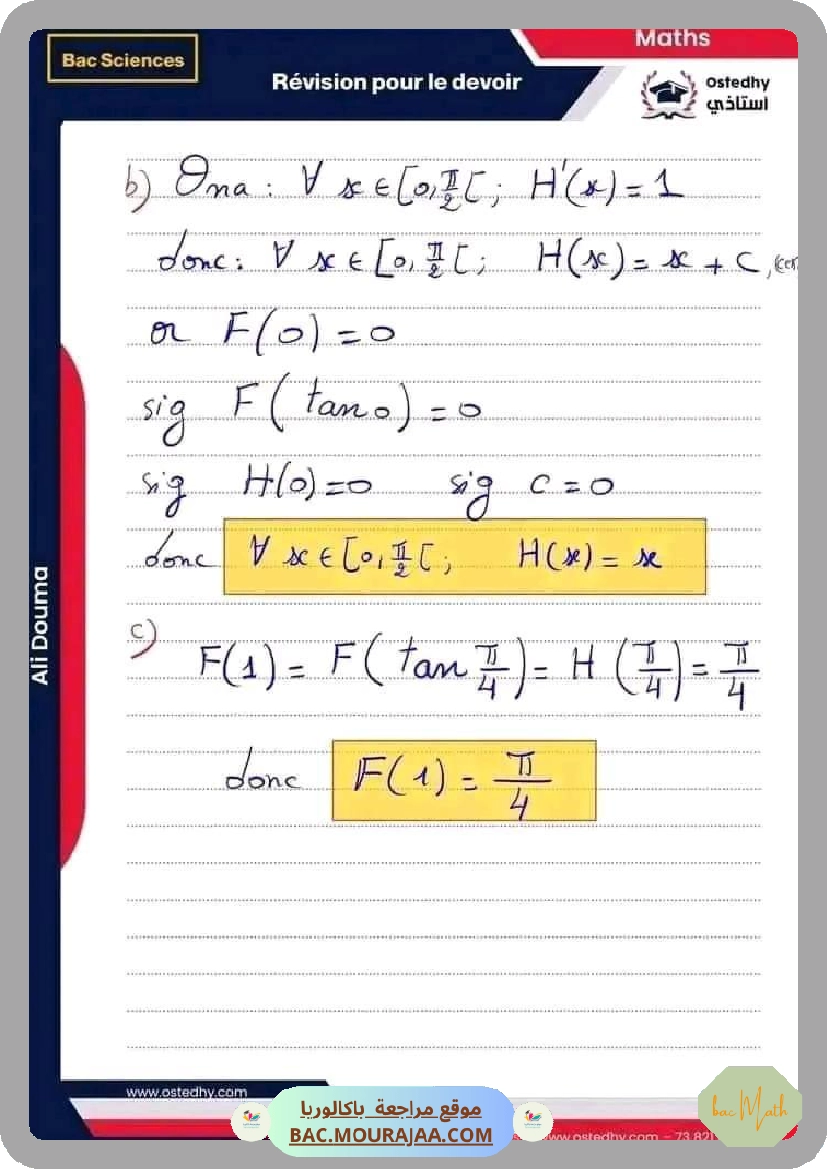 Maths
Bac Sciences
Révision pour le devoir
Ostedhy
استاذي
b) Ona : ∀ x ∈ [0, π/2 [ ; H'(x) = 1
donc : ∀ x ∈ [0, π/2 [ ; H(x) = x + c
or F(0) = 0
sig F( tan 0 ) = 0
sig H(0) = 0 sig c = 0
donc ∀ x ∈ [0, π/2 [ ; H(x) = x
c)
F(1) = F( tan π/4 ) = H ( π/4 ) = π/4
donc F(1) = π/4
Ali Douma
www.ostedhy.com
موقع مراجعة باكالوريا
BAC.MOURAJAA.COM
www.ostedhy.com – 73.821
bac Math